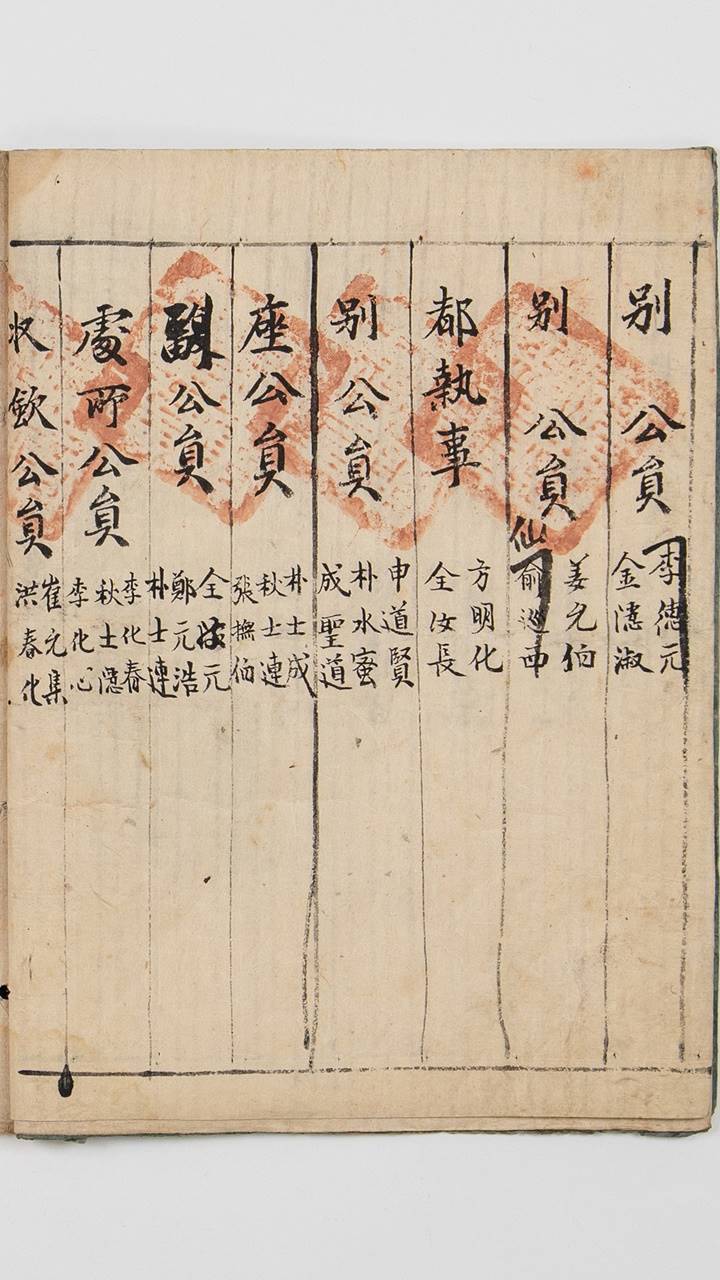 別公員
李德元
金淑
別公員
姜允伯
仙
俞巡西
都執事
方明化
全汝長
別公員
申道賢
朴水蜜
成聖道
座公員
朴士成
秋士連
張撫伯
副公員
全元
鄭元浩
朴士連
處所公員
李化春
秋士
李化心
收斂公員
崔元集
洪春化